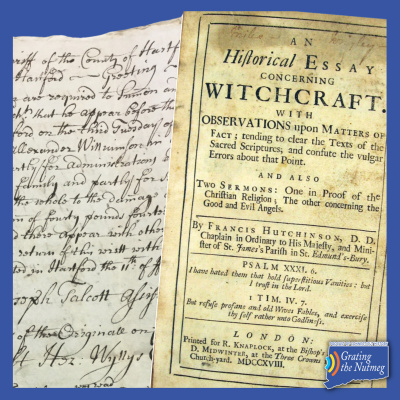 riff of the County of Hartf
Hartford — Greeting
e are required to Sumon an
that he appear before the
ford on the third Tuesday
Alexander Williamson in
by for administration
family and partly for
the whole to the damage
m of fourty pounds fourteen
d there appear with other
return of this writt with
ted in Hartford the 11th of
oseph Talcott Assis
of the Original on
Hez. Wyllys
AN
Hiſtorical ESSAY
CONCERNING
WITCHCRAFT.
WITH
OBSERVATIONS upon MATTERS OF
FACT; tending to clear the Texts of the
Sacred Scriptures, and confute the vulgar
Errors about that Point.
AND ALSO
TWO SERMONS: One in Proof of the
Chriſtian Religion; The other concerning the
Good and Evil Angels.
By FRANCIS HUTCHINSON, D. D.
Chaplain in Ordinary to His Majeſty, and Mini-
ſter of St. James's Pariſh in St. Edmund's-Bury.
PSALM XXXI. 6.
I have hated them that hold ſuperſtitious Vanities: but
I truſt in the Lord.
1 TIM. IV. 7.
But refuſe profane and old Wives Fables, and exerciſe
thy ſelf rather unto Godlineſs.
LONDON:
Printed for R. KNAPLOCK, at the Biſhop's
D. MIDWINTER, at the Three Crowns
Church-yard. MDCCXVIII.
Grating
the Nutmeg